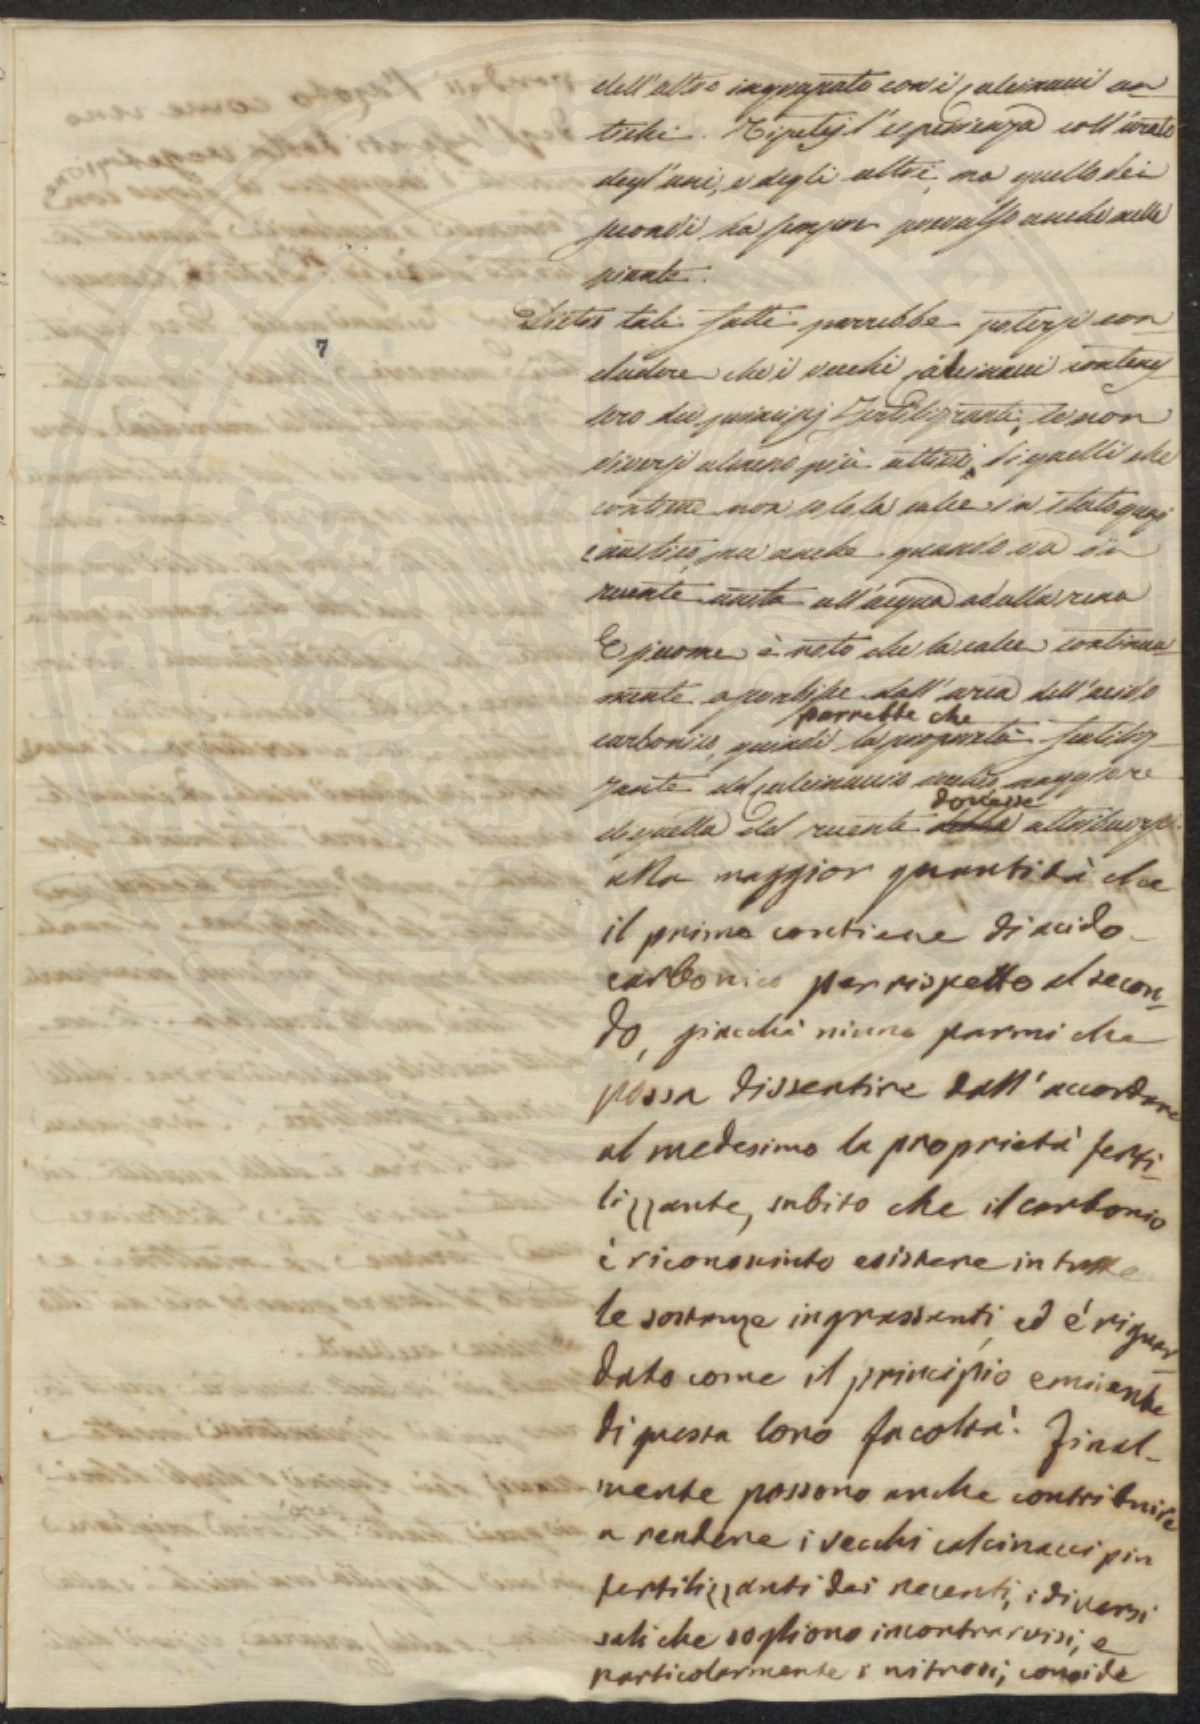 dell'altro ingrassato con i calcinacci an
tichi. Ripetej l'esperienza coll'orzo
degl'uni, e degli altri, ma quello dei
secondi ha sempre prevalso anche nelle
piante.
Dietro tali fatti parrebbe potersi con
cludere che i vecchi calcinacci contenes
sero dei principj fertilizzanti, se non
diversi almeno più attivi, di quelli che
contiene non solo la calce in stato quasi
caustico, ma anche quando va di re
cente unita all'acqua ad alla rena
E siccome è noto che la calce continua
mente assorbisce dall'aria dell'acido
parrebbe che
carbonico, quindi la proprietà fertiliz
zante del calcinaccio vecchio maggiore
dovesse
di quella del recente attribuirsi
alla maggior quantità che
il primo contiene di acido
carbonico per rispetto al secon-
do, giacchè niuno parmi che
possa dissentire dall'accordare
al medesimo la proprietà ferti-
lizzante, subito che il carbonio
è riconosciuto esistere in tutte
le sostanze ingrassanti, ed è riguar-
dato come il principio eminente
di questa loro facoltà. Final-
mente possono anche contribuire
a rendere i vecchi calcinacci più
fertilizzanti dei recenti, i diversi
sali che sogliono incontrarvisi, e
particolarmente i nitrosi, conside
7